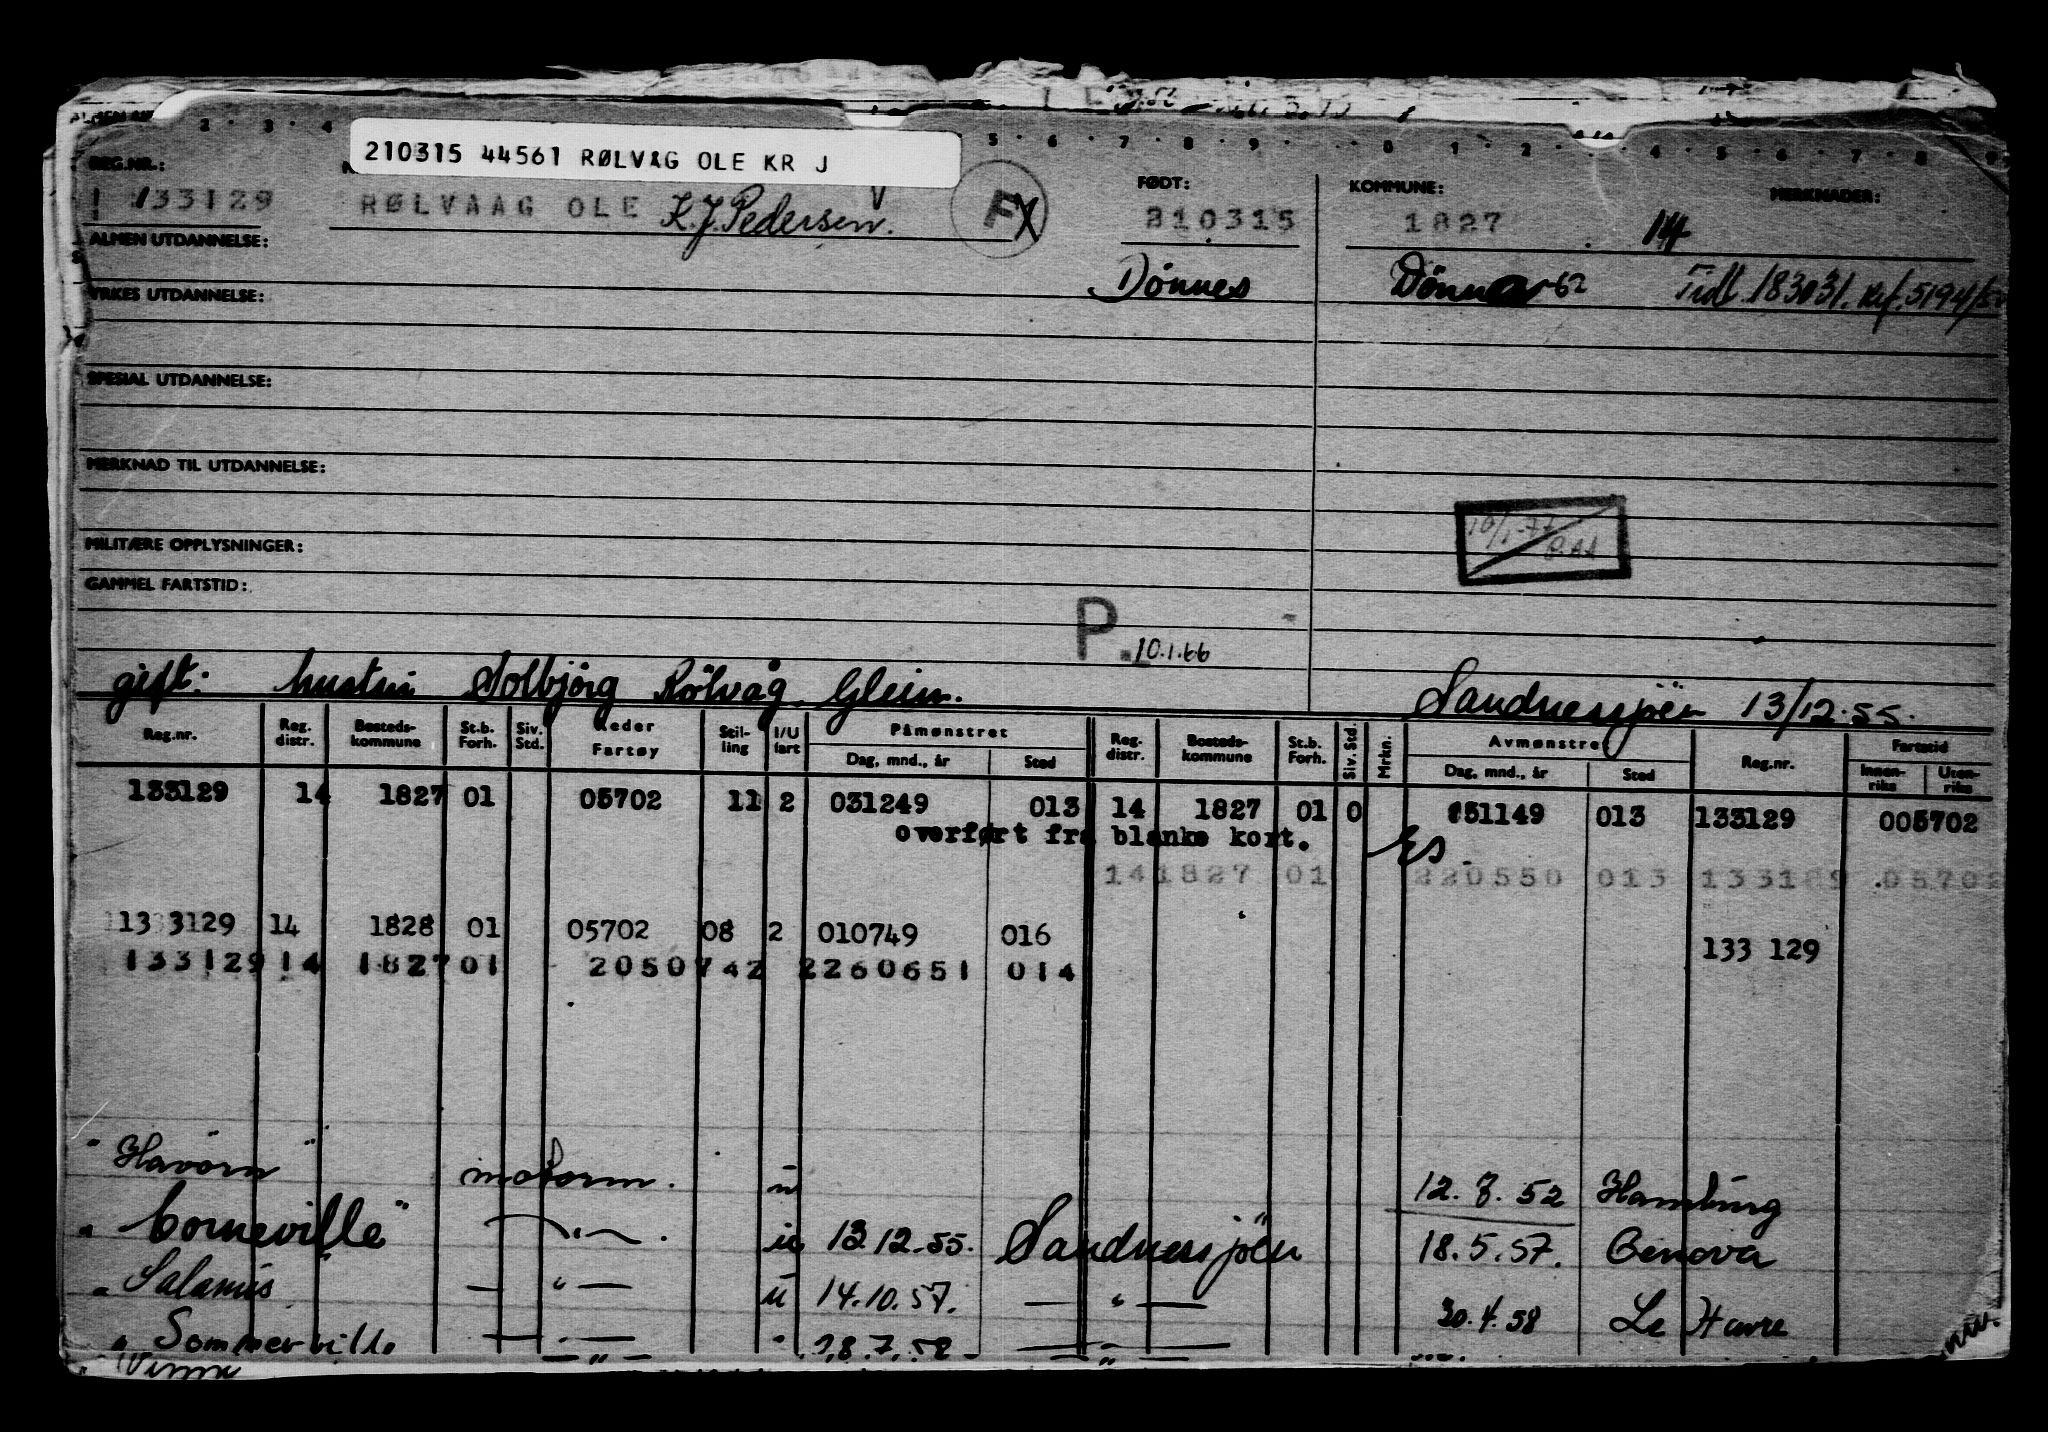 2 · 3 · 4 5 · 6 · 7 · 8 · 9 · 0 · 1 · 2 · 4 · 5 · 6 · 7 · 8 · 9
210315 44561 RØLVAG OLE KR J
REG.NR.: FØDT: KOMMUNE: MERKNADER:
133129 RØLVAAG OLE K. J. Pedersen. F 210315 1827 14
ALMEN UTDANNELSE:
Dönnes Dönna 62 Tidl. 183031. Ref. 5194/
YRKES UTDANNELSE:
SPESIAL UTDANNELSE:
MERKNAD TIL UTDANNELSE:
10/1-77
MILITÆRE OPPLYSNINGER:
GAMMEL FARTSTID:
P. 10.1.66
gift: hustru Solbjörg Rölvåg Glein. Sandnessjöen 13/12.55.
Reg.nr. Reg. distr. Bosteds-kommune St.b. Forh. Siv. Std. Reder Fartøy Stil-ling I/U fart Påmønstret Dag, mnd., år Sted Reg. distr. Bosteds-kommune St.b. Forh. Siv. Std. Mrkn. Avmønstret Dag, mnd., år Sted Reg.nr. Fartstid Innen-riks Uten-riks
133129 14 1827 01 05702 11 2 031249 013 14 1827 01 0 51149 013 133129 005702
overført fra blanke kort.
14 1827 01 220550 013 133129 .05702
133129 14 1828 01 05702 08 2 010749 016 133 129
133129 14 1827 01 2050742 2260651 014
"Havörn" motorm. u 12. 7. 52 Hamburg
" Corneville" — " — . u 13.12.55. Sandnessjöen 18.5.57. Genova
" Salamis — " — u 14.10.57. — " — 30.4.58 Le Havre
" Sommerville — " — " 18.7.58 — " —